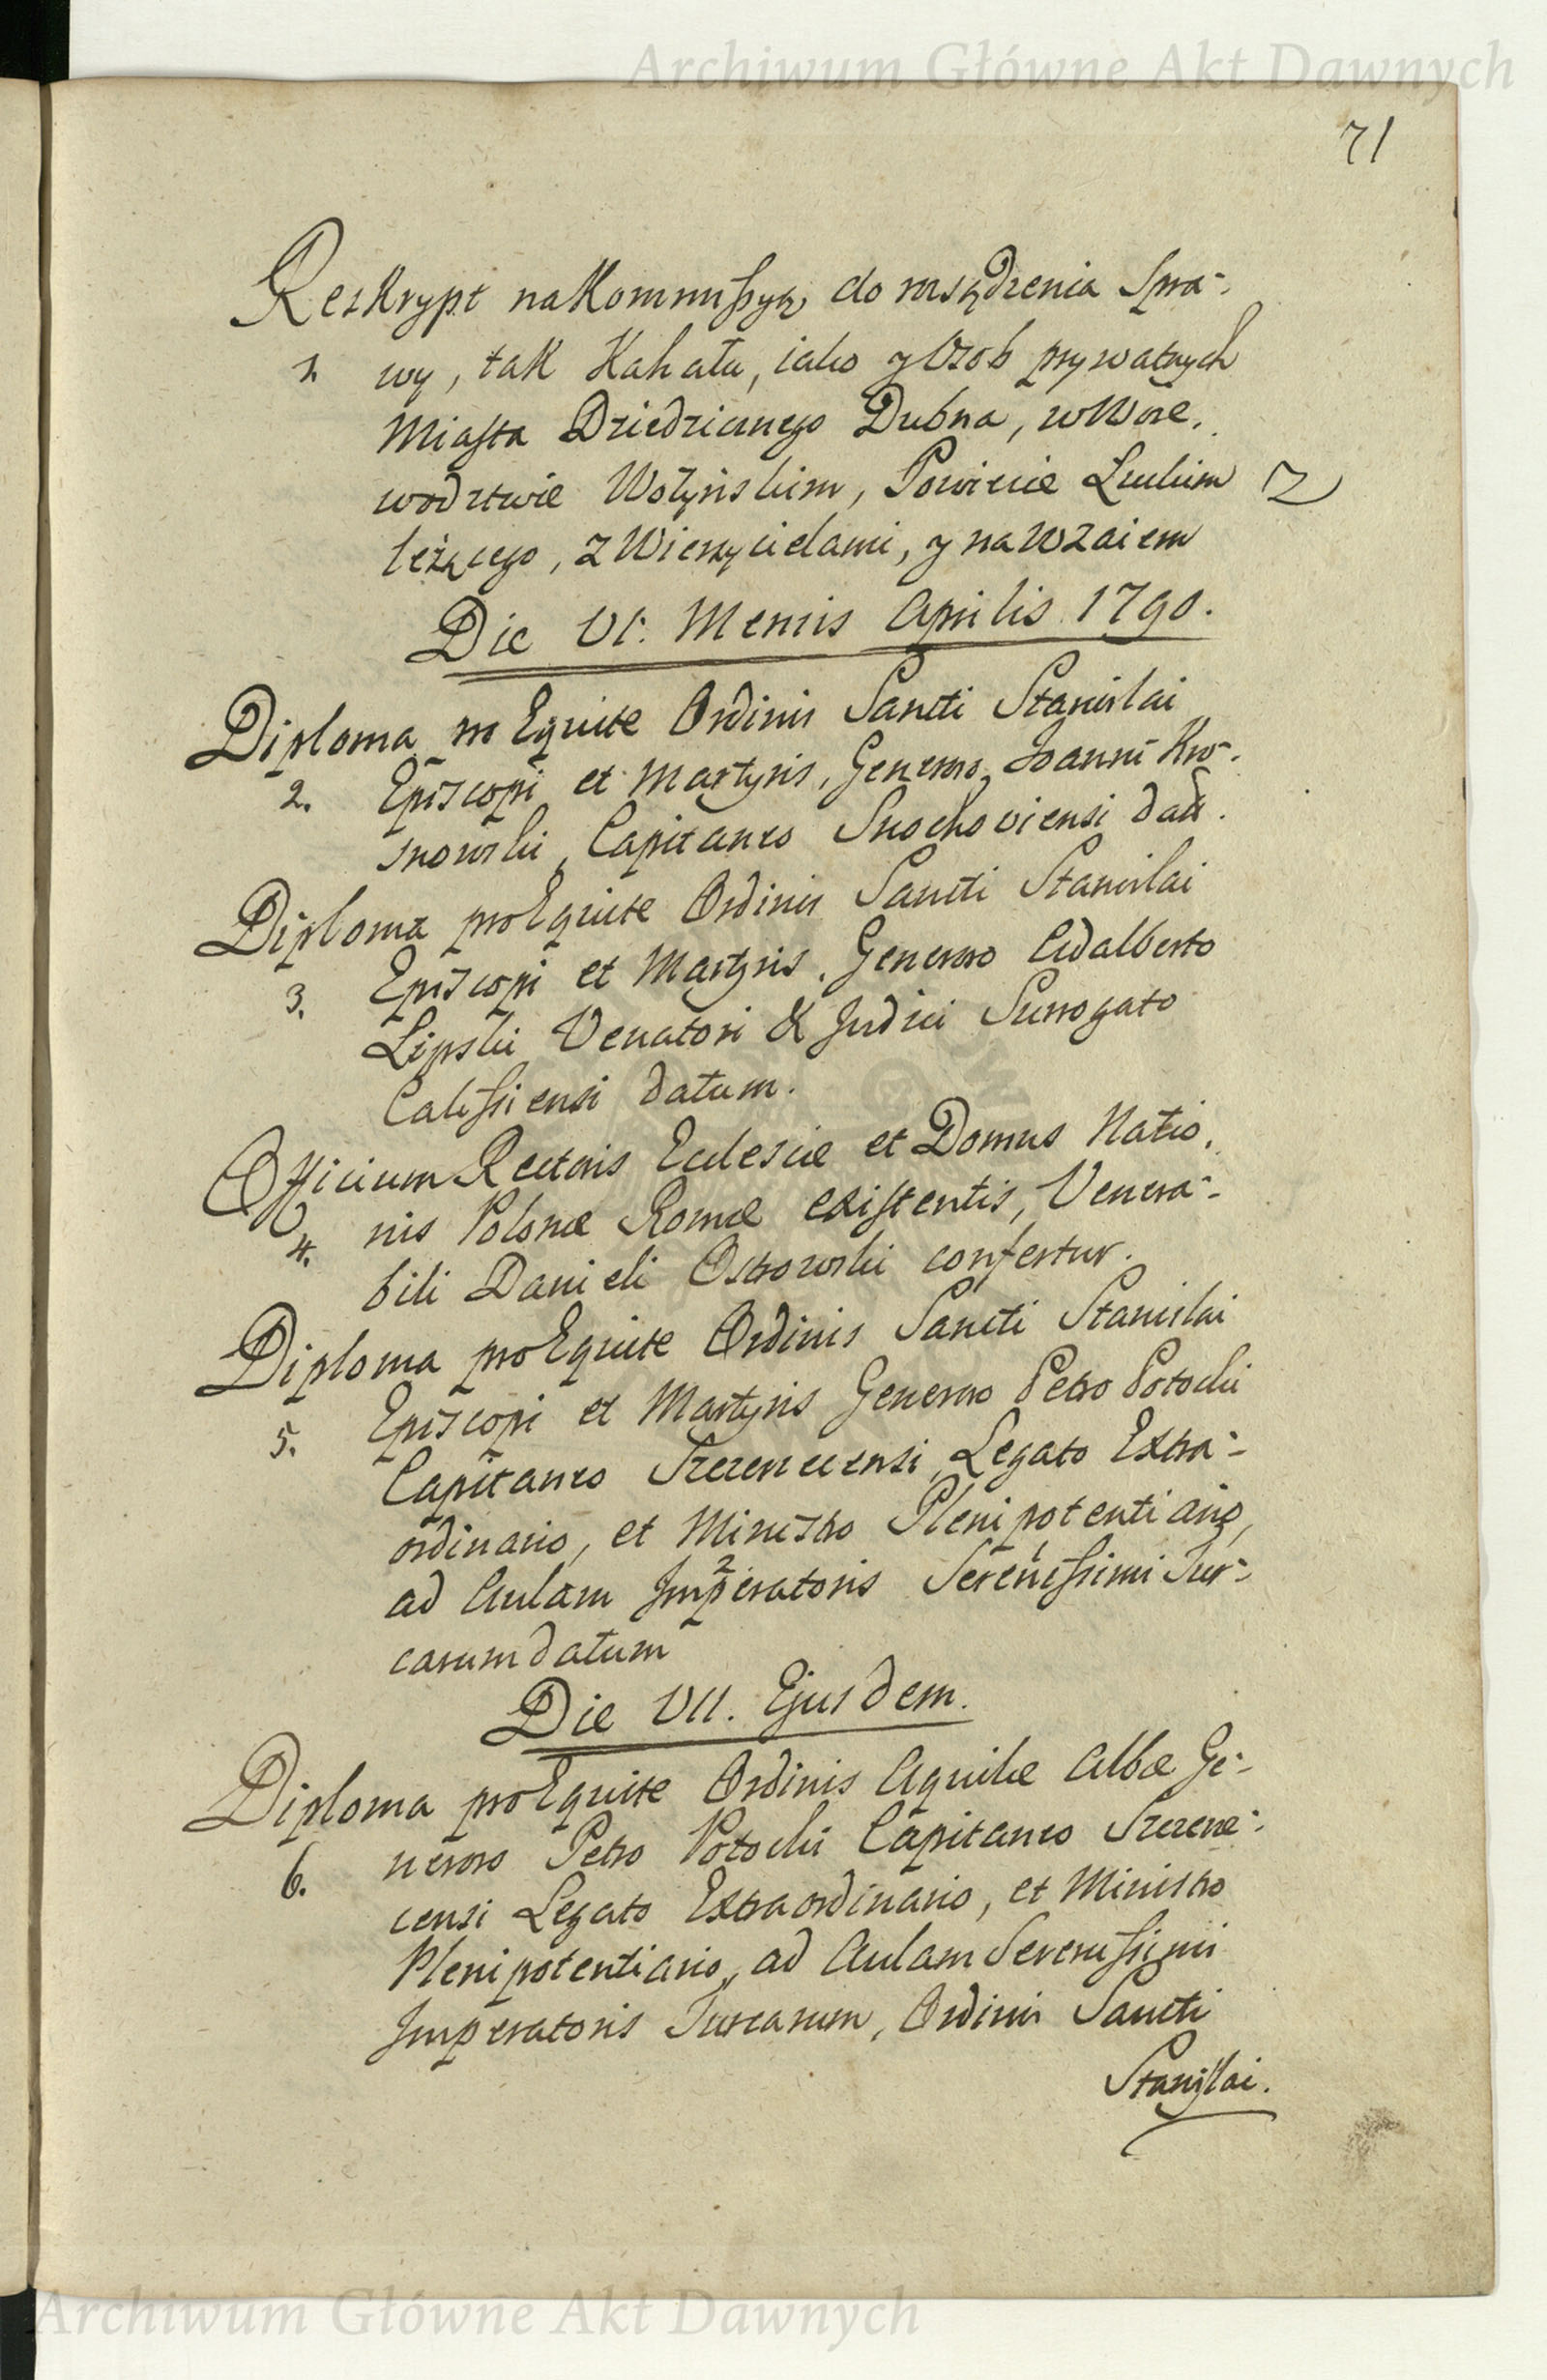 Archiwum Główne Akt Dawnych
71
Reskrypt na Kommissyą do rozsądzenia Spra-
1. wy, tak Kahału, iako y Osob prywatnych
Miasta Dziedzicznego Dubna, w Woie.
wodztwie Wołyńskim, Powiecie Luckim
leżącego, z Wierzycielami, y na Wzaiem
Die VI. Mensis Aprilis 1790.
Diploma pro Equite Ordinis Sancti Stanislai
2. Episcopi et Martyris, Generoso Joanni Kro-
snowski, Capitaneo Snochoviensi datt.
Diploma pro Equite Ordinis Sancti Stanislai
3. Episcopi et Martyris, Generoso Adalberto
Lipski Venatori & Judici Surrogato
Calissiensi datum.
Officium Rectoris Ecclesiæ et Domus Natio.
4. nis Polonæ Romæ existentis, Venera-
bili Danieli Ostrowski confertur.
Diploma pro Equite Ordinis Sancti Stanislai
5. Episcopi et Martyris Generoso Petro Potocki
Capitaneo Szczerecensi, Legato Extra-
ordinario, et Ministro Plenipotentiario,
ad Aulam Imperatoris 2 Serenissimi 1 Tur-
carum datum
Die VII. Ejusdem.
Diploma pro Equite Ordinis Aquilæ Albæ Ge-
6. neroso Petro Potocki Capitaneo Szczere-
censi Legato Extraordinario, et Ministro
Plenipotentiario, ad Aulam Serenissimi
Imperatoris Turcarum, Ordinis Sancti
Stanislai.
Archiwum Główne Akt Dawnych